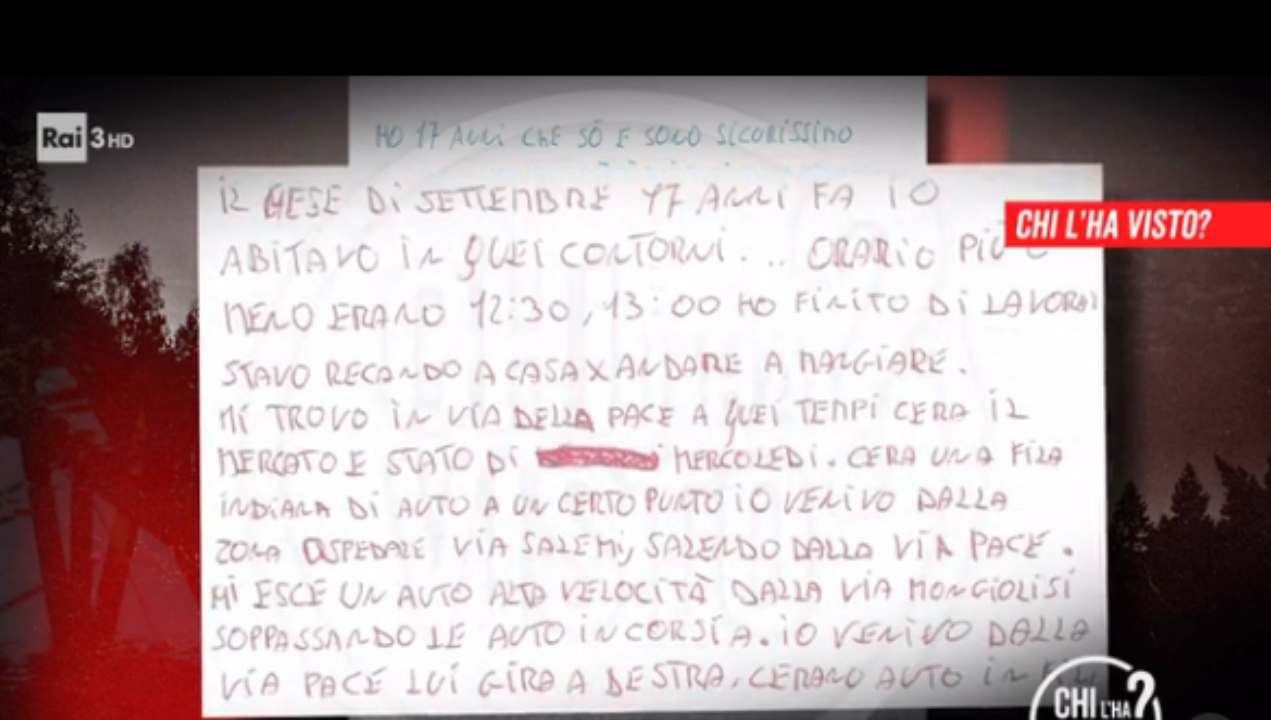 Rai 3 HD
HO 17 ANNI CHE SÓ E SONO SICURISSIMO
IL MESE DI SETTEMBRE 17 ANNI FA IO
CHI L'HA VISTO?
ABITAVO IN QUEI CONTORNI... ORARIO PIÙ O
MENO ERANO 12:30, 13:00 HO FINITO DI LAVORA
STAVO RECANDO A CASA X ANDARE A MANGIARE.
MI TROVO IN VIA DELLA PACE A QUEI TEMPI CERA IL
MERCATO E STATO DI MERCOLEDI. CERA UNA FILA
INDIANA DI AUTO A UN CERTO PUNTO IO VENIVO DALLA
ZONA OSPEDALE VIA SALEMI, SALENDO DALLA VIA PACE.
MI ESCE UN AUTO ALTA VELOCITÀ DALLA VIA MONGIOLISI
SOPPASSANDO LE AUTO IN CORSIA. IO VENIVO DALLA
VIA PACE LUI GIRA A DESTRA. CERANO AUTO IN
CHI L'HA ?